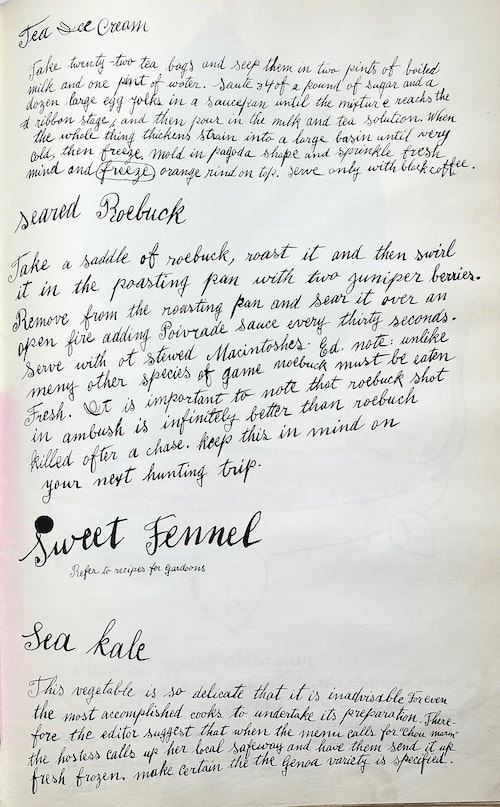 Tea Ice Cream
Take twenty-two tea bags and seep them in two pints of boiled
milk and one pint of water. Saute 3/4 of a pound of sugar and a
dozen large egg yolks in a saucepan until the mixture reaches the
ribbon stage, and then pour in the milk and tea solution. When
the whole thing thickens strain into a large basin until very
cold, then freeze, mold in pagoda shape and sprinkle fresh
mind and freeze orange rind on top. Serve only with black coffee.
Seared Roebuck
Take a saddle of roebuck, roast it and then swirl
it in the poasting pan with two juniper berries.
Remove from the roasting pan and sear it over an
open fire adding Poivrade sauce every thirty seconds.
Serve with ot stewed Macintoshes. Ed. note: unlike
meny other species of game noebuck must be eaten
Fresh. It is important to note that roebuck shot
in ambush is infinitely better than roebuch
killed after a chase. keep this in mind on
your next hunting trip.
Sweet Fennel
Refer to recipes for Gardoons
Sea kale
This vegetable is so delicate that it is inadvisable For even
the most accomplished cooks to undertake its preparation. There-
fore the editor suggest that when the menu calls for "Chou marin"
the hostess calls up her local safeway and have them send it up
fresh frozen. make certain the the Genoa variety is specified.